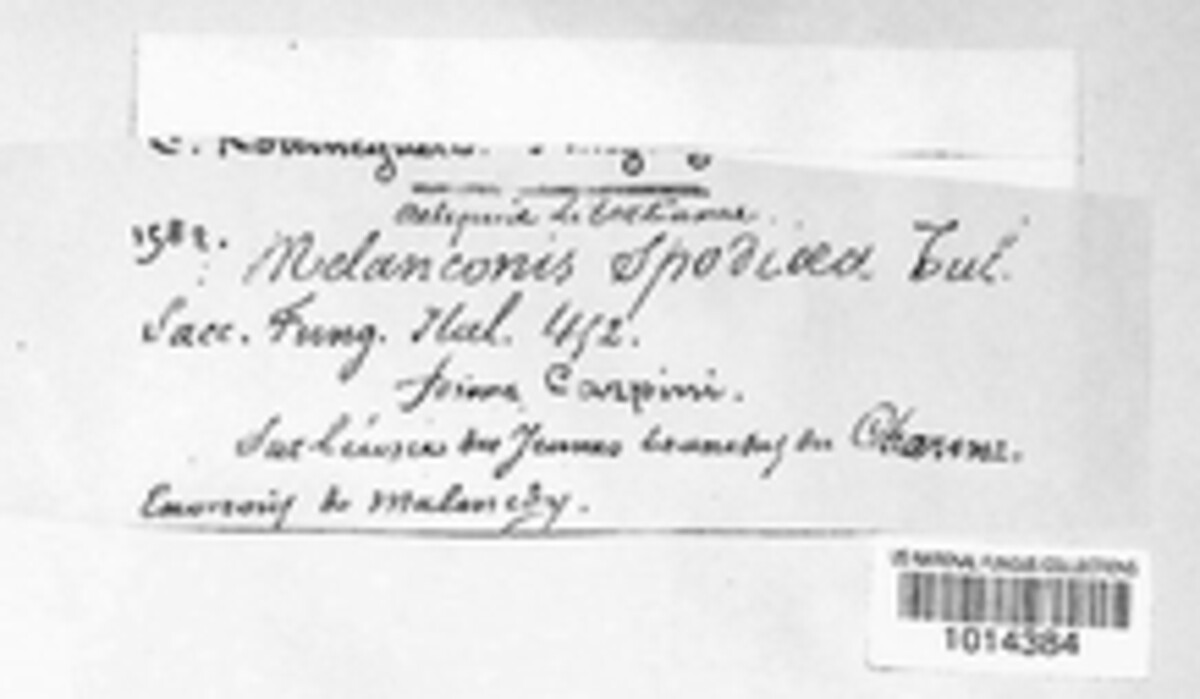 C. Roumeguère.
Reliquiæ Libertianæ.
1582. Melanconis Spodiaea Tul.
Sacc. Fung. Ital. 452.
forma Carpini.
Sur l'écorce des Jeunes branches du Charme.
Environs de Malmedy.
US NATIONAL FUNGUS COLLECTIONS
1014384